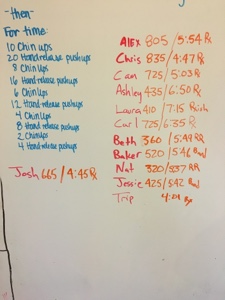 -then-
For time:
10 Chin ups
20 Hand release pushups
8 Chin Ups
16 Hand-release pushups
6 Chin ups
12 Hand release pushups
4 Chin Ups
8 Hand release pushups
2 Chin ups
4 Hand release pushups
Josh 665/4:45 Rx
Alex 805/5:54 Rx
Chris 835/4:47 Rx
Cam 725/5:03 Rx
Ashley 435/6:50 Rx
Laura 410/7:15
Carl 725/6:35 Rx
Beth 360/5:49 RR
Baker 520/5:46 Band
Nat 320/5:37 RR
Jessie 425/5:42 Band
Trip 4:01 Rx